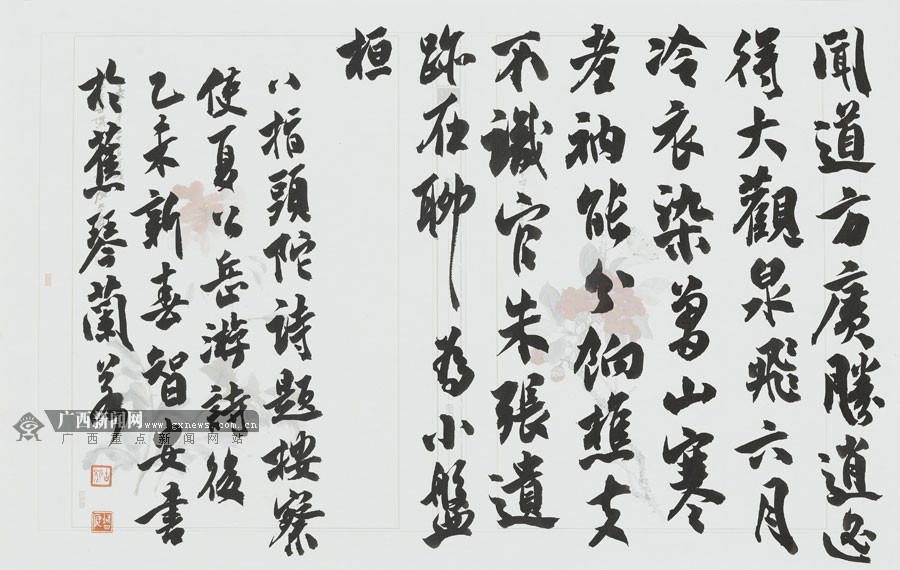 聞道方廣勝逍遙
得大觀泉飛六月
冷衣染萬山寒
老衲能分饷樵夫
不識官朱張遺
跡在聊為小盤
桓
八指頭陀詩題按察
使夏公岳游詩後
乙未新喜智安書
於蕉琴蘭
广西新闻网
www.gxnews.com.cn
广西重点新闻网站